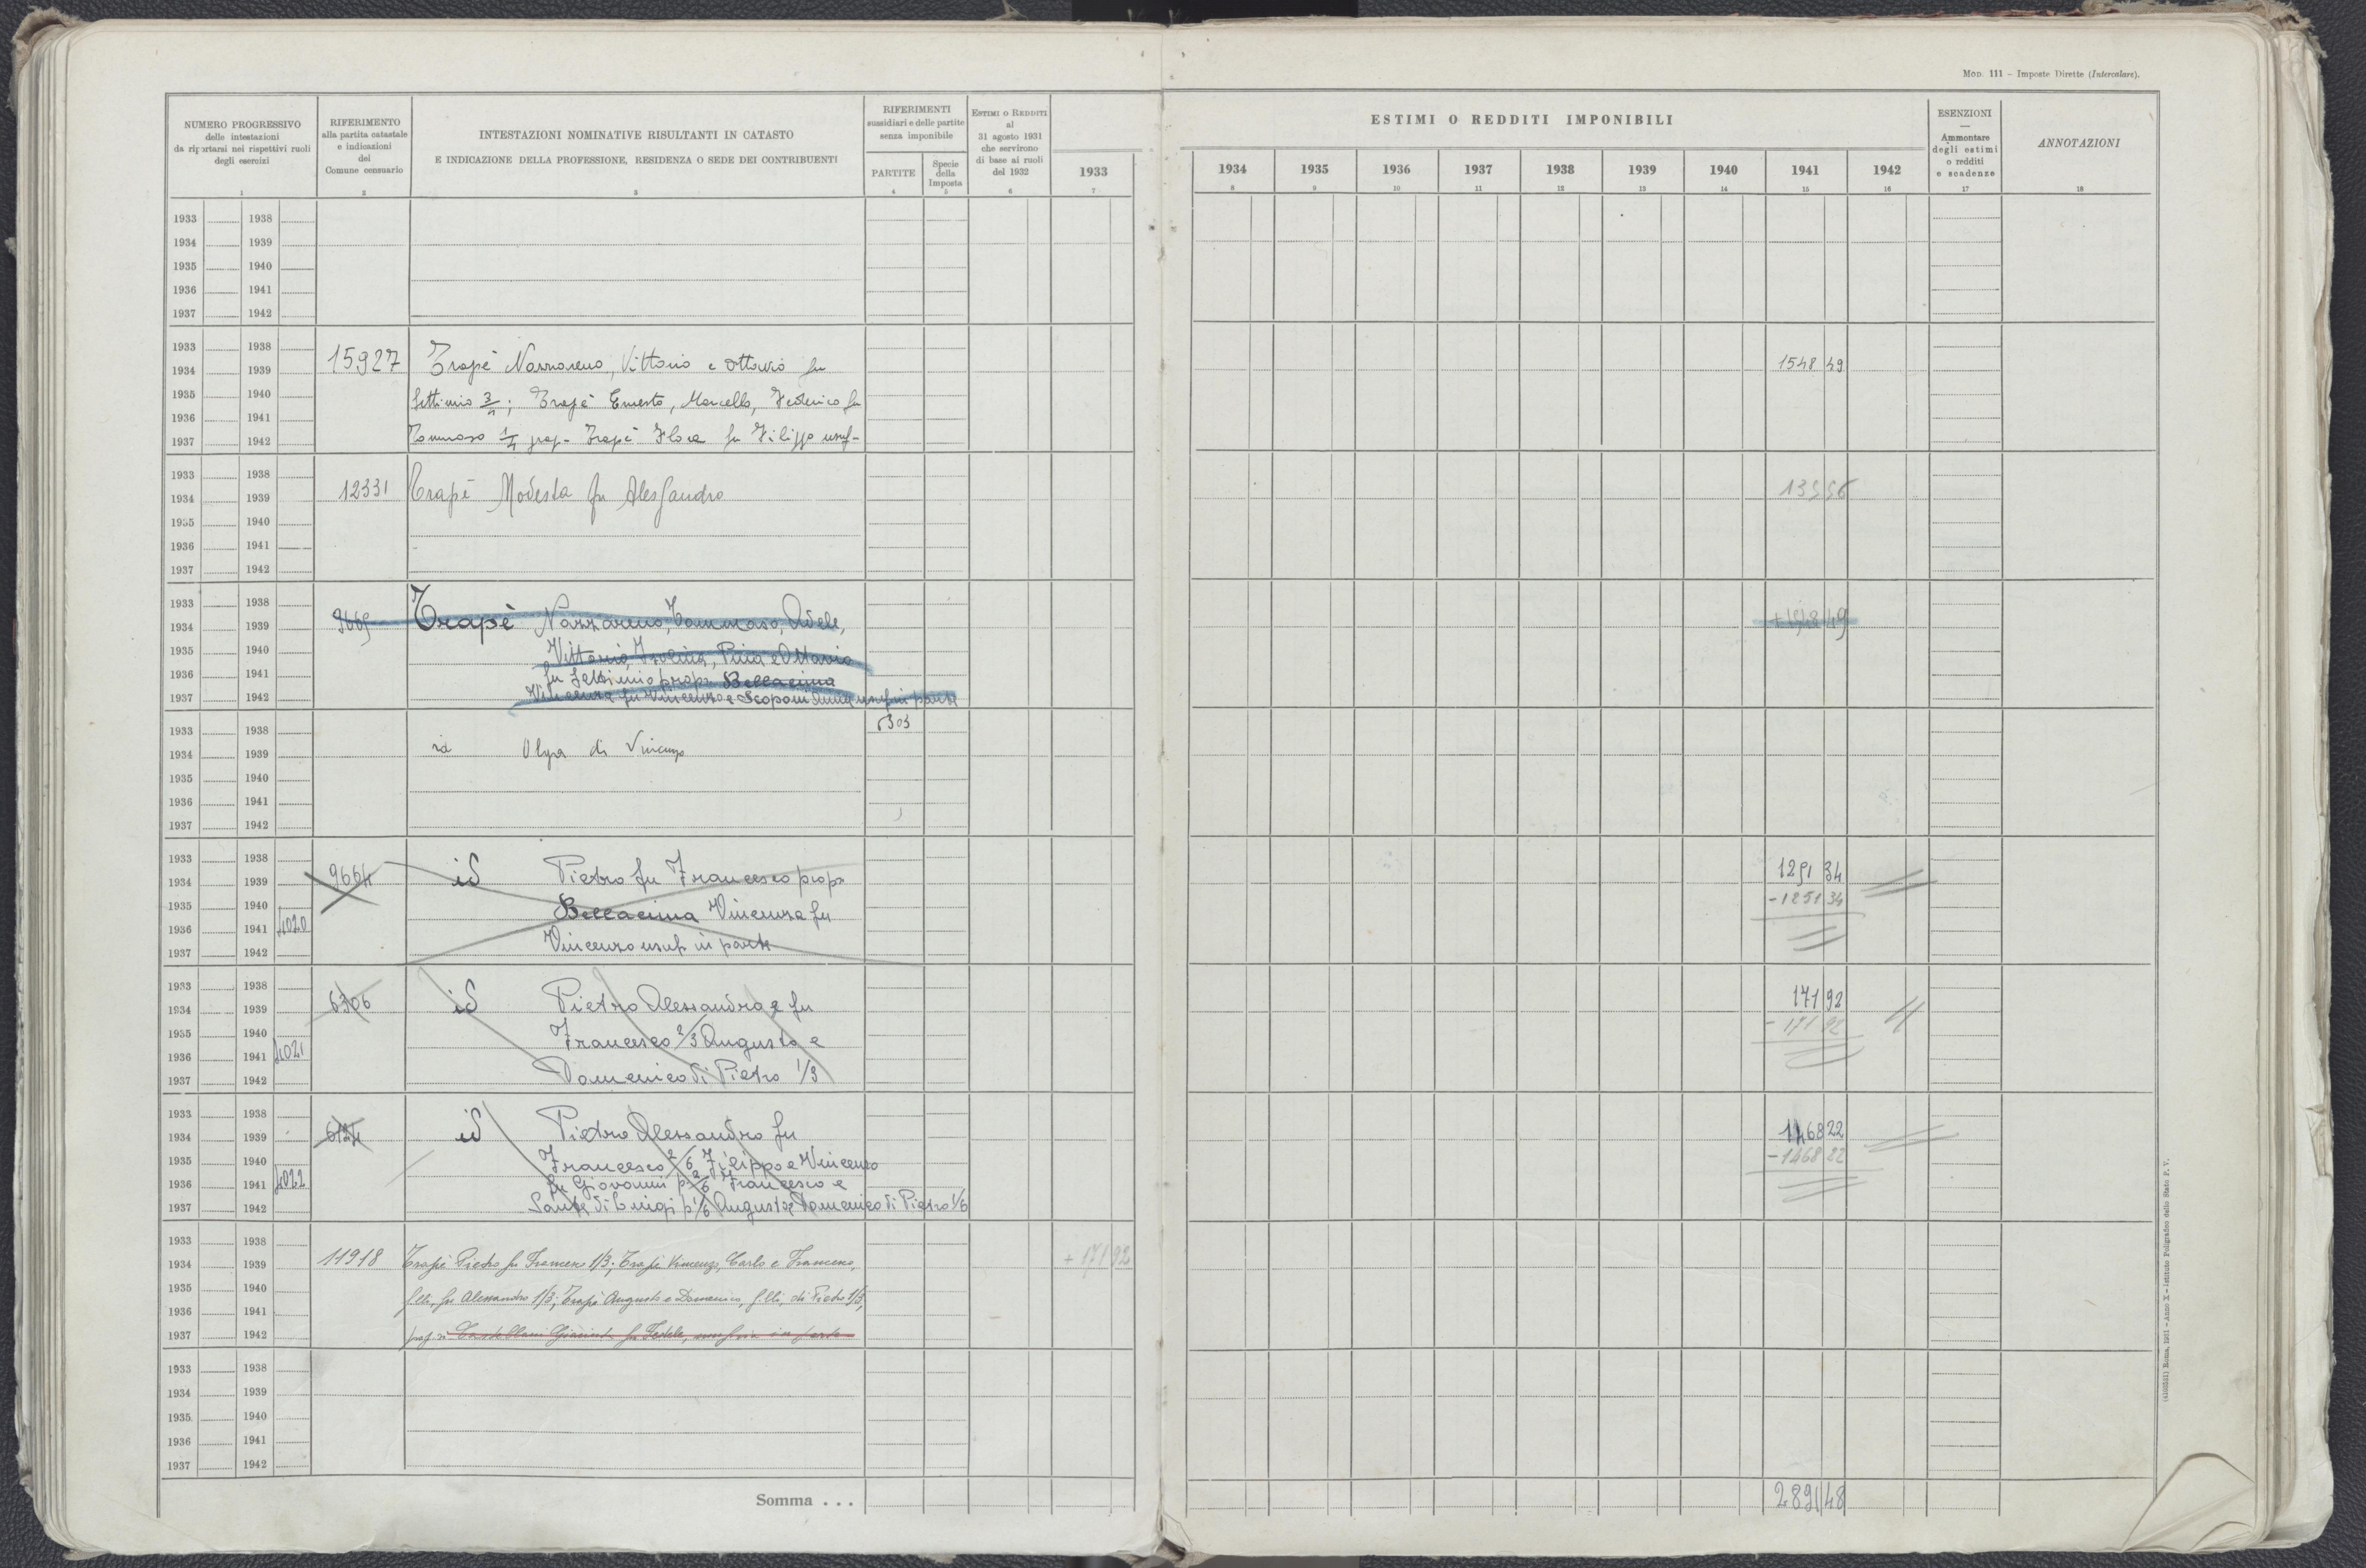 MOD. 111 – Imposte Dirette (Intercalare).
NUMERO PROGRESSIVO
delle intestazioni
da riportarsi nei rispettivi ruoli
degli esercizi
1
RIFERIMENTO
alla partita catastale
e indicazioni
del
Comune censuario
2
INTESTAZIONI NOMINATIVE RISULTANTI IN CATASTO
E INDICAZIONE DELLA PROFESSIONE, RESIDENZA O SEDE DEI CONTRIBUENTI
3
RIFERIMENTI
sussidiari e delle partite
senza imponibile
PARTITE
4
Specie
della
Imposta
5
ESTIMI O REDDITI
al
31 agosto 1931
che servirono
di base ai ruoli
del 1932
6
1933
7
ESTIMI O REDDITI IMPONIBILI
1934 1935 1936 1937 1938 1939 1940 1941 1942
8 9 10 11 12 13 14 15 16
ESENZIONI
—
Ammontare
degli estimi
o redditi
e scadenze
17
ANNOTAZIONI
18
1933 1938
1934 1939
1935 1940
1936 1941
1937 1942
1933 1938
1934 1939 15927 Trapè Nazzareno, Vittorio e Ottavio fu 1548 49
1935 1940 Settimio 3/4; Trapè Ernesto, Marcello, Federico fu
1936 1941
1937 1942 Tommaso 1/4 prop- Trapè Flora fu Filippo usuf-
1933 1938
1934 1939 12331 Trapè Modesta fu Alessandro
1935 1940
1936 1941
1937 1942
1933 1938
1934 1939 9665 Trapè Nazzareno, Tommaso, Adele, + 1548 49
1935 1940 Vittorio, Isolina, Pina e Ottavio
1936 1941 fu Settimio propr Bellacima
1937 1942 Vincenza fu Vincenzo e Scoponi usuf in parte
1933 1938 6303
1934 1939 id Olga di Vincenzo
1935 1940
1936 1941
1937 1942
1933 1938
1934 1939 9664 id Pietro fu Francesco propr 1251 34
1935 1940 Bellacima Vincenza fu - 1251 34
1936 1941 4020
1937 1942 Vincenzo usuf in parte
1933 1938
1934 1939 6306 id Pietro Alessandro e fu 171 92
1935 1940 Francesco 2/3 Augusto e - 171 92
1936 1941 4021
1937 1942 Domenico di Pietro 1/3
1933 1938
1934 1939 id Pietro Alessandro fu 1468 22
1935 1940 Francesco 2/6 Filippo e Vincenzo - 1468 22
1936 1941 4022 fu Giovanni p 2/6 Francesco e
1937 1942 Sante di Luigi p 1/6 Augusto e Domenico di Pietro 1/6
1933 1938
1934 1939 11918 Trapè Pietro fu Francesco 1/3; Trapè Vincenzo, Carlo e Francesco, + 171 92
1935 1940 f.lli, fu Alessandro 1/3; Trapè Augusto e Domenico, f.lli, di Pietro 1/3,
1936 1941
1937 1942 prop.ri Castellani Giacinta fu Fedele, usufr.ia in parte
1933 1938
1934 1939
1935 1940
1936 1941
1937 1942
Somma . . . 2891 48
(4103551) Roma, 1931 - Anno X - Istituto Poligrafico dello Stato P. V.